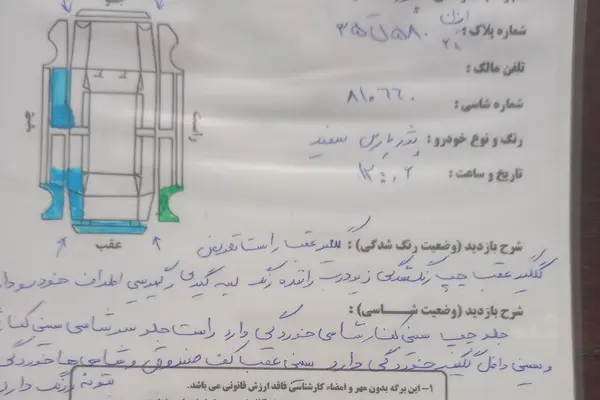 جلو
شماره پلاک : ایران ۲۱ ۵۸۰ ق ۳۵
تلفن مالک :
شماره شاسی : ۸۱۰۶۶۰
رنگ و نوع خودرو : پژو پارس سفید
تاریخ و ساعت : ۱۳:۰۲
چپ
راست
عقب
شرح بازدید (وضعیت رنگ شدگی) : گلگیر عقب راست تعویض
گلگیر عقب چپ رنگ شدگی زیر درب راننده رنگ لبه گیری و گریس اطراف خودرو دارد
شرح بازدید (وضعیت شاسی) :
جلو چپ سینی کنار شاسی خوردگی دارد راست جلو سر شاسی سینی کنار
و سینی داخل گلگیر خوردگی دارد سینی عقب کف صندوق و شاسی ها خوردگی
رنگ دارد
۱- این برگه بدون مهر و امضاء کارشناسی فاقد ارزش قانونی می باشد.